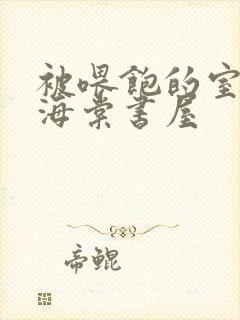 被喂饱的室
海棠书屋
帝鲲